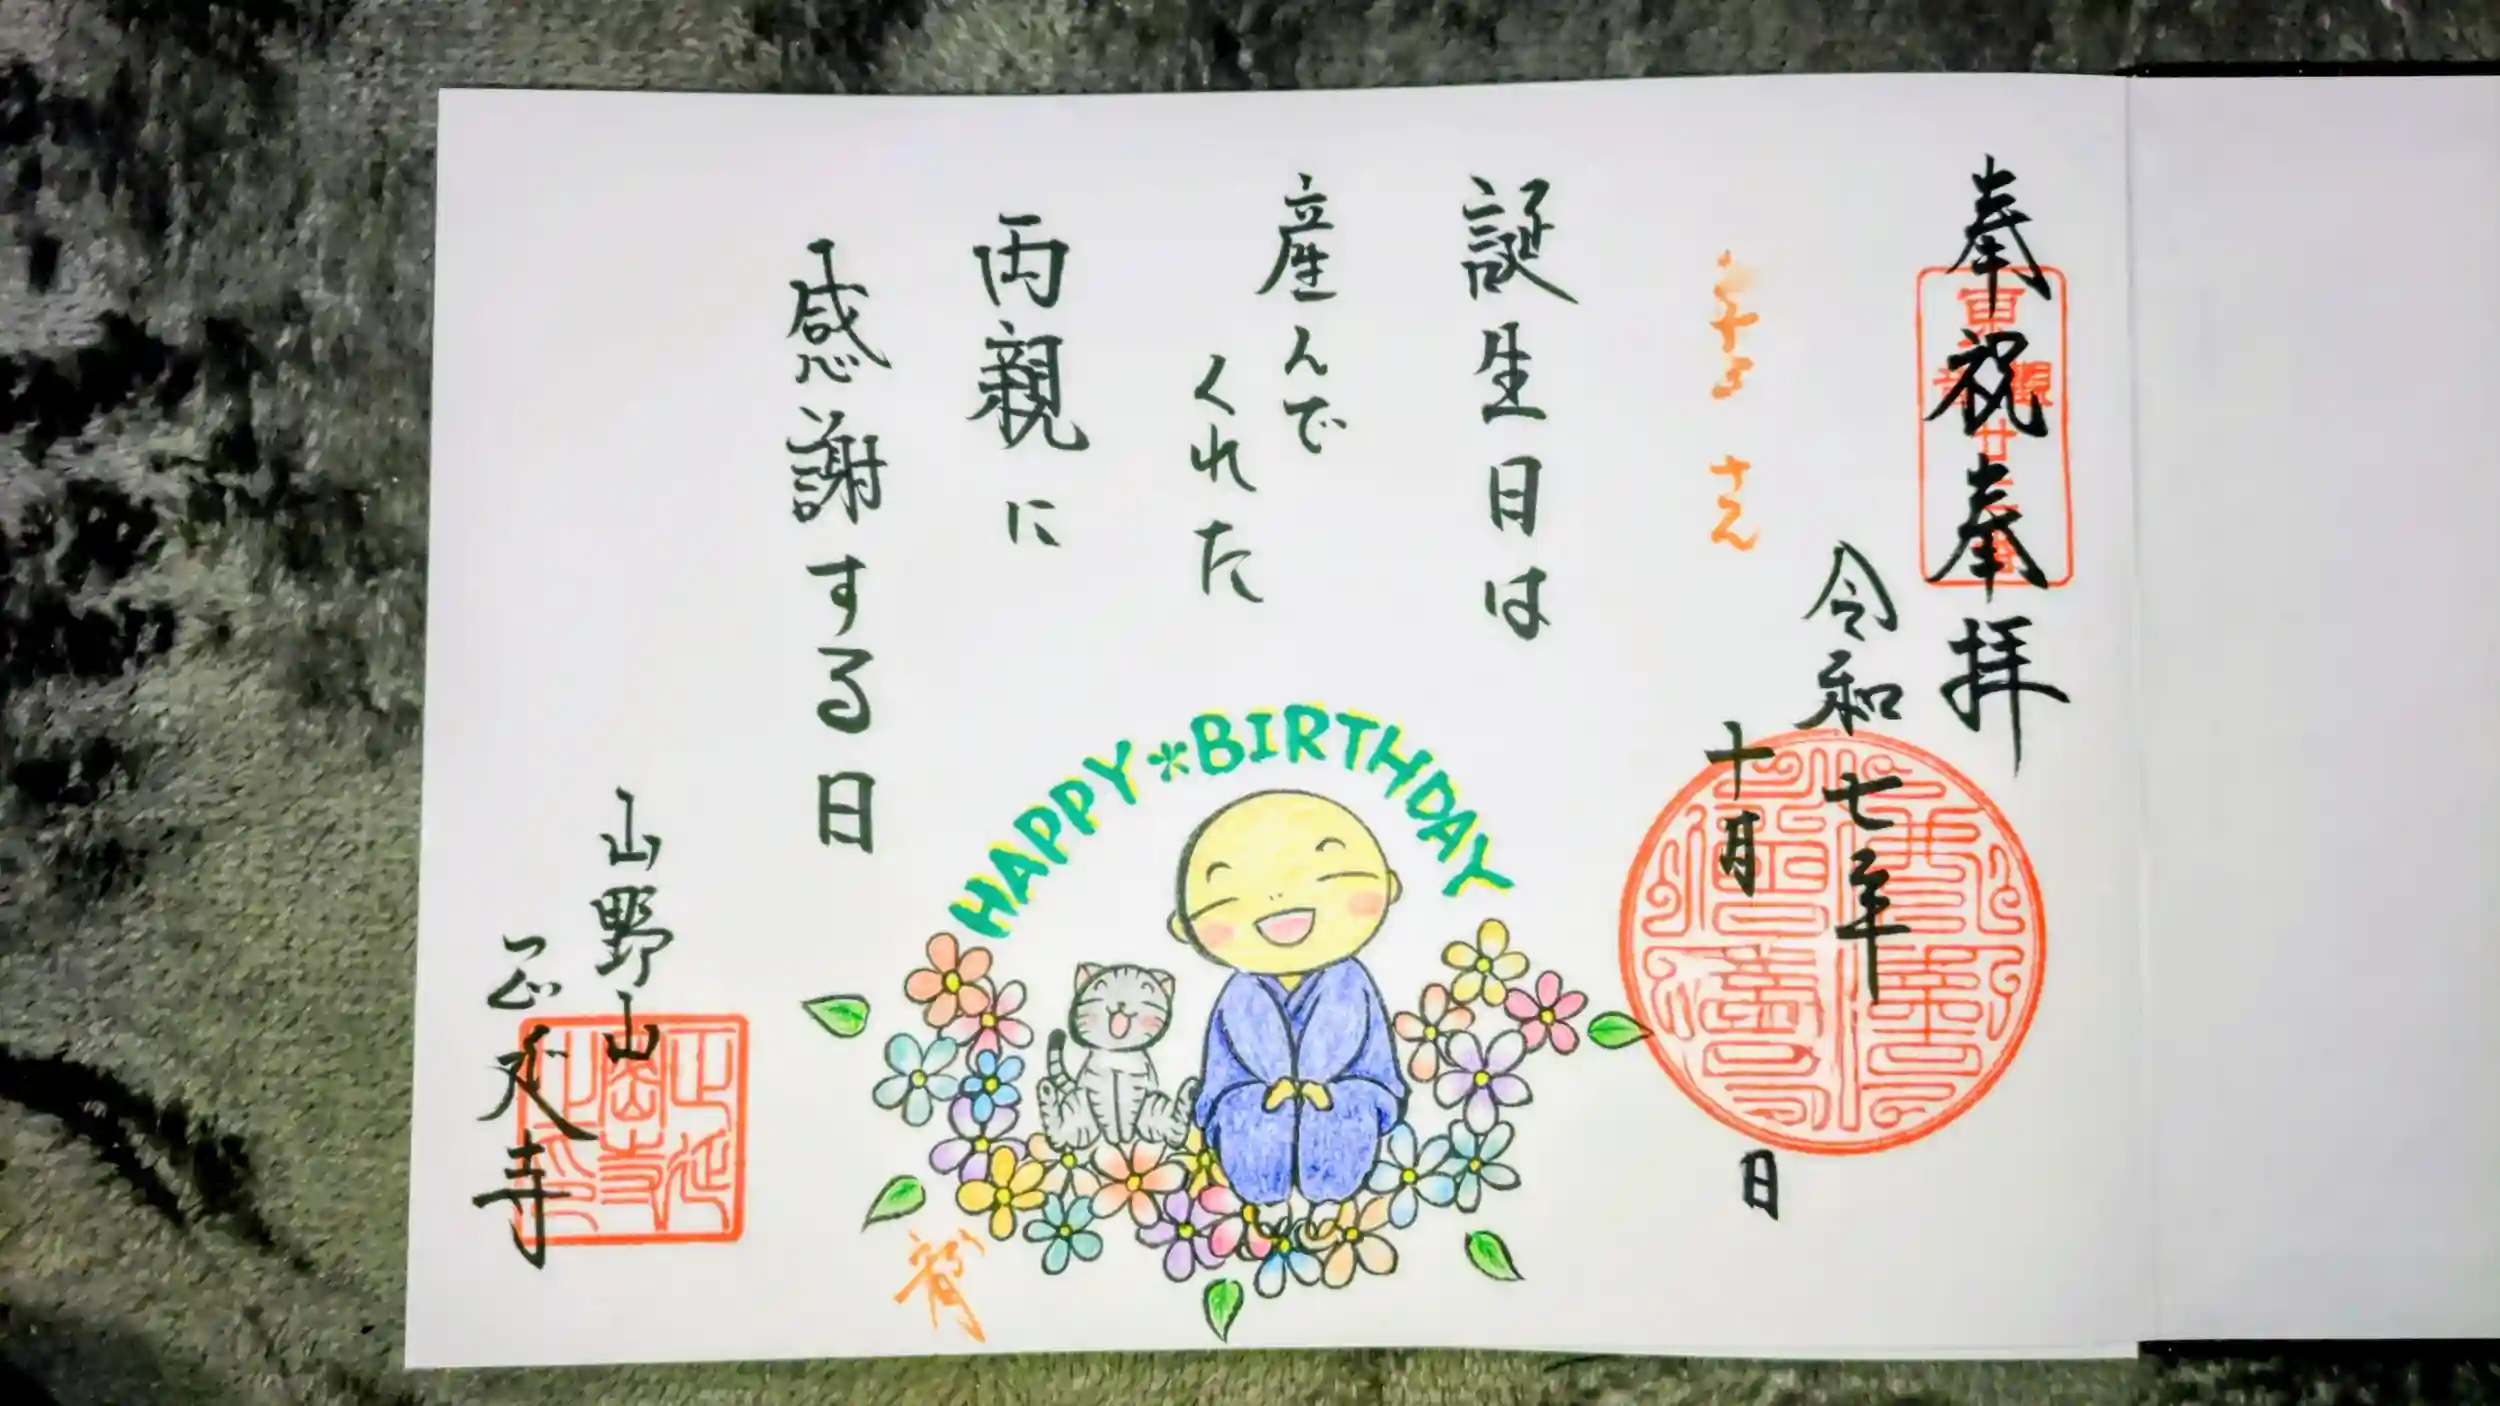 奉祝奉拝
令和七年
十月 日
誕生日は
産んで
くれた
両親に
感謝する日
HAPPY*BIRTHDAY
山野山
正延寺